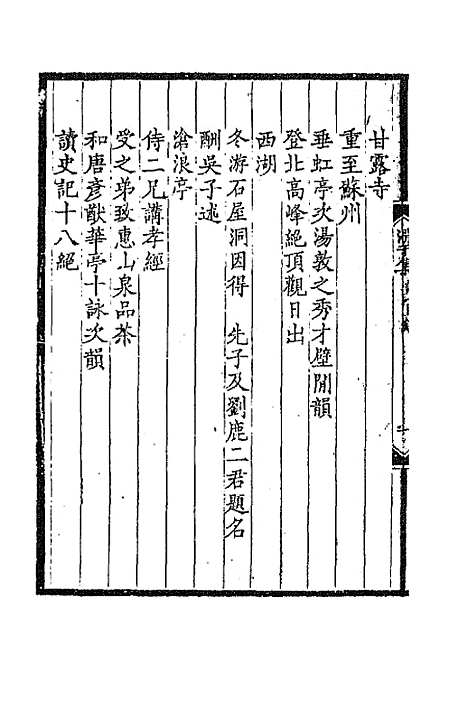 甘露寺
重至蘇州
垂虹亭次湯敦之秀才壁間韻
登北高峰絕頂觀日出
西湖
冬游石屋洞因得　先子及劉鹿二君題名
酬吳子述
滄浪亭
侍二兄講孝經
受之弟致惠山泉品茶
和唐彥猷華亭十詠次韻
讀史記十八絕